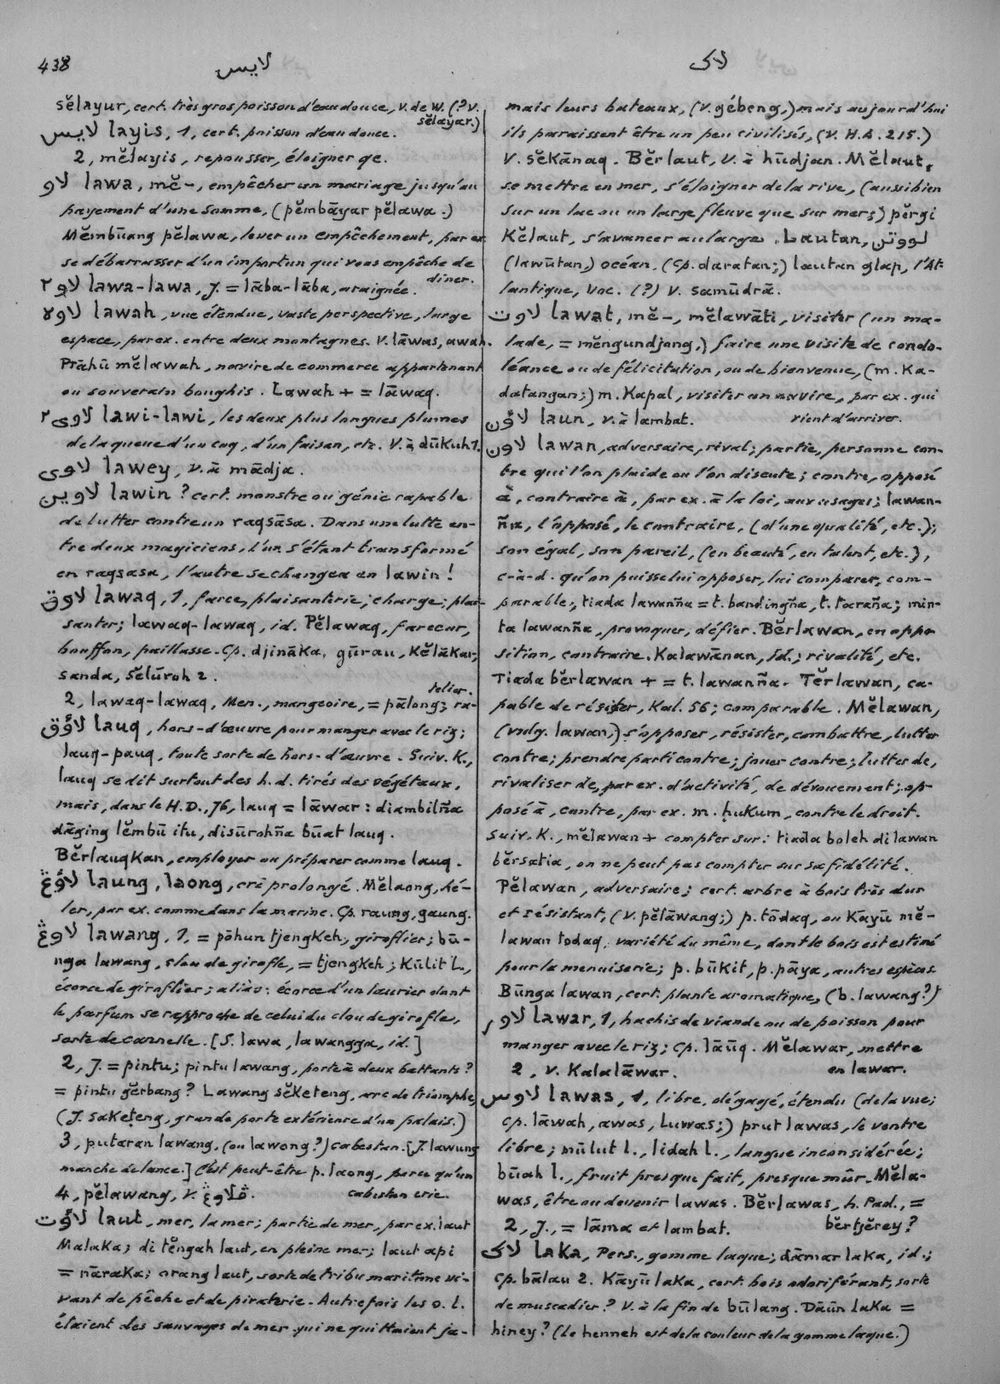 438
لايس
لاك
sĕlayur, cert. très gros poisson d'eau douce, V. de W. (? V.
sĕlayar.)
لايس layis, 1, cert. poisson d'eau douce.
2, mĕlayis, repousser, éloigner qe.
لاو lawa, mĕ-, empêcher un mariage jusqu'au
payement d'une somme, (pĕmbāyar pĕlawa.)
Mĕmbūang pĕlawa, lever un empêchement, par ex.
se débarrasser d'un importun qui vous empêche de
dîner.
لاو٢ lawa-lawa, J. = lāba-lāba, araignée.
لاوه lawah, vue étendue, vaste perspective, large
espace, par ex. entre deux montagnes. V. lāwas, awah.
Prāhū mĕlawah, navire de commerce appartenant
au souverain boughis. Lawah + = lāwaq.
لاوي٢ lawi-lawi, les deux plus longues plumes
de la queue d'un coq, d'un faisan, etc. V. à dūkuh 1.
لاوى lawey, v. à mādja.
لاوين lawin? cert. monstre ou génie capable
de lutter contre un raqsāsa. Dans une lutte en-
tre deux magiciens, l'un s'étant transformé
en raqsasa, l'autre se changea en lawin!
لاوق lawaq, 1, farce, plaisanterie; charge; plai-
santer; lawaq-lawaq, id. Pĕlawaq, farceur,
bouffon, paillasse. Cp. djināka, gūrau, kĕlākar,
sanda, sĕlūroh 2.
2, lawaq-lawaq, Men., mangeoire, = pālong; ra-
telier.
لاوق lauq, hors-d'œuvre pour manger avec le riz;
lauq-pauq, toute sorte de hors-d'œuvre. Suiv. K.,
lauq se dit surtout des h. d. tirés des végétaux,
mais, dans le H.D., 76, lauq = lāwar: diambilña
dāging lĕmbū itu, disūrohña būat lauq.
Bĕrlauqkan, employer ou préparer comme lauq.
لاوڠ laung, laong, cri prolongé. Mĕlaong, hé-
ler, par ex. comme dans la marine. Cp. raung, gaung.
لاوڠ lawang, 1, = pōhun tjengkeh, giroflier; bū-
nga lawang, clou de girofle, = tjengkeh; kūlit l.,
écorce de giroflier; aliàs: écorce d'un laurier dont
le parfum se rapproche de celui du clou de girofle,
sorte de cannelle. [S. lawa, lawangga, id.]
2, J. = pintu; pintu lawang, porte à deux battants?
= pintu gĕrbang? Lawang sĕketeng, arc de triomphe,
(J. saketeng, grande porte extérieure d'un palais.)
3, putaran lawang, (ou lawong?) cabestan. [J. lawung
manche de lance.] C'est peut-être p. laong, parce qu'un
cabestan crie.
4, pĕlawang, V. ڤلاوڠ.
لاوت laut, mer, la mer; partie de mer, par ex. laut
Malaka; di tĕngah laut, en pleine mer; laut api
= nāraka; orang laut, sorte de tribu maritime vi-
vant de pêche et de piraterie. Autrefois les o. l.
étaient des sauvages de mer qui ne quittaient ja-
mais leurs bateaux, (V. gébeng,) mais aujourd'hui
ils paraissent être un peu civilisés, (V. H.A. 215.)
V. sĕkānaq. Bĕrlaut, V. à hūdjan. Mĕlaut,
se mettre en mer, s'éloigner de la rive, (aussi bien
sur un lac ou un large fleuve que sur mer;) pĕrgi
kĕlaut, s'avancer au large. Lautan, لووتن
(lawūtan,) océan. (Cp. daratan;) lautan glap, l'At-
lantique, Voc. (?) V. samūdrā.
لاوت lawat, mĕ-, mĕlawāti, visiter (un ma-
lade, = mĕngundjong,) faire une visite de condo-
léance ou de félicitation, ou de bienvenue, (m. ka-
datangan;) m. kapal, visiter un navire, par ex. qui
vient d'arriver.
لاون laun, v. à lambat.
لاون lawan, adversaire, rival; partie, personne con-
tre qui l'on plaide ou l'on discute; contre, opposé
à, contraire à, par ex. à la loi, aux usages; lawan-
ña, l'opposé, le contraire, (d'une qualité, etc.);
son égal, son pareil, (en beauté, en talent, etc.),
c-à-d. qu'on puisse lui opposer, lui comparer, com-
parable; tiada lawanña = t. bandingña, t. taraña; min-
ta lawanña, provoquer, défier. Bĕrlawan, en oppo-
sition, contraire. Kalawānan, id.; rivalité, etc.
Tiada bĕrlawan + = t. lawanña. Tĕrlawan, ca-
pable de résister, Kal. 56; comparable. Mĕlawan,
(vulg. lawan,) s'opposer, résister, combattre, lutter
contre; prendre parti contre; jouer contre; lutter de,
rivaliser de, par ex. d'activité, de dévouement; op-
posé à, contre, par ex. m. ḥukum, contre le droit.
Suiv. K., mĕlawan + compter sur: tiada boleh dilawan
bĕrsatia, on ne peut pas compter sur sa fidélité.
Pĕlawan, adversaire; cert. arbre à bois très dur
et résistant, (V. pĕlāwang;) p. tōdaq, ou kayū mĕ-
lawan todaq, variété du même, dont le bois est estimé
pour la menuiserie; p. būkit, p. pāya, autres espèces.
Būnga lawan, cert. plante aromatique, (b. lawang?)
لاور lawar, 1, hachis de viande ou de poisson pour
manger avec le riz; cp. lāūq. Mĕlawar, mettre
en lawar.
2, V. kalalāwar.
لاوس lawas, 1, libre, dégagé, étendu (de la vue;
cp. lāwah, awas, luwas;) prut lawas, le ventre
libre; mūlut l., lidah l., langue inconsidérée;
būah l., fruit presque fait, presque mûr. Mĕla-
was, être ou devenir lawas. Bĕrlawas, h. Pad., =
bĕrtjĕrey?
2, J., = lāma et lambat.
لاك laka, Pers., gomme laque; dāmar laka, id.;
cp. bālau 2. Kāyū laka, cert. bois odoriférant, sorte
de muscadier? V. à la fin de būlang. Dāūn laka =
hiney? (Le henneh est de la couleur de la gomme laque.)